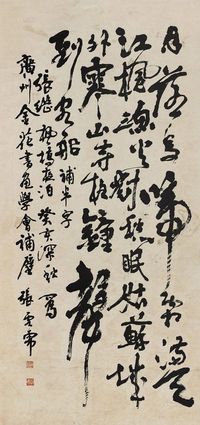 月落烏啼霜滿天
江楓漁火對愁眠姑蘇城
外寒山寺夜鐘聲
到客船 補半字
張繼楓橋夜泊 癸亥深秋寫
廣州金花書畫學會補壁 張